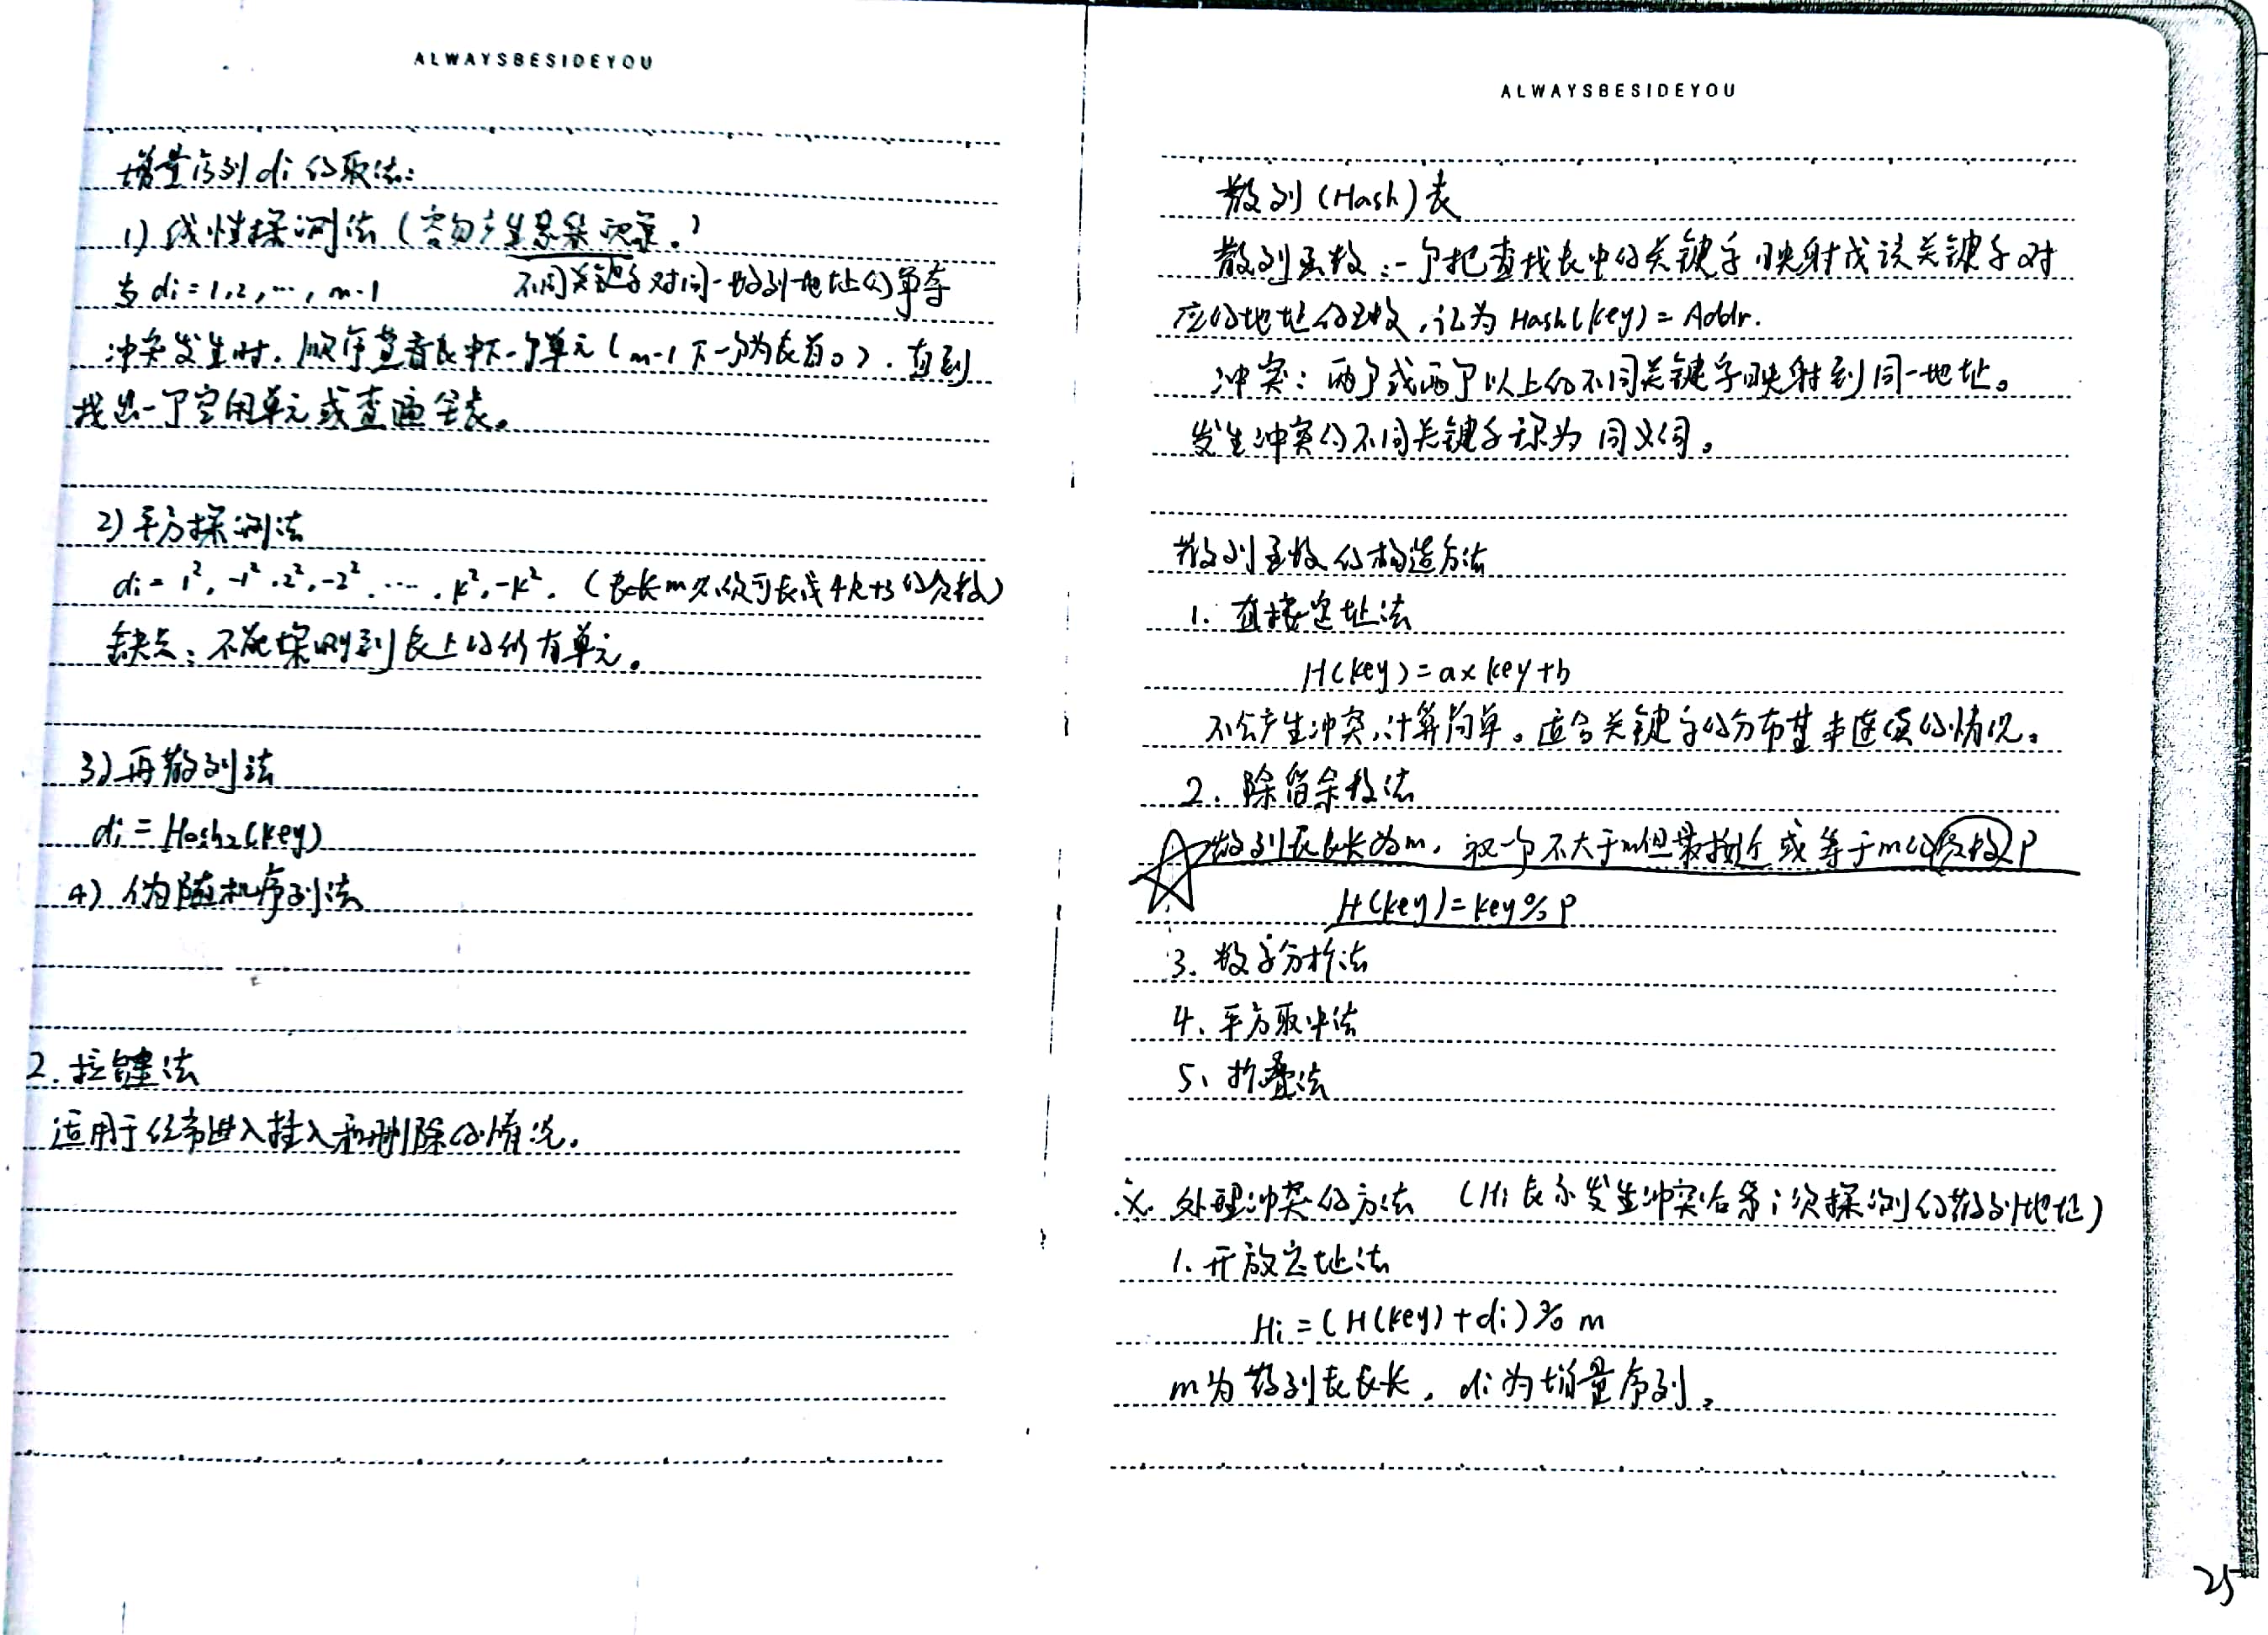 ALWAYSBESIDEYOU
增量序列di的取法:
1) 线性探测法(容易产生聚集现象。)
当di=1,2,…,m-1 不同关键字对同一散列地址的争夺
冲突发生时,顺序查看表中下一个单元(m-1下一个为表首0),直到
找出一个空闲单元或查遍全表。
2) 平方探测法
di=1²,-1²,2²,-2²,…,k²,-k²,(表长m必须可表成4k+3的素数)
缺点:不能探测到表上的所有单元。
3) 再散列法
di=Hash₂(key)
4) 伪随机序列法
2.拉链法
适用于经常进入插入和删除的情况。
ALWAYSBESIDEYOU
散列(Hash)表
散列函数:一个把查找表中的关键字映射成该关键字对
应的地址的函数,记为Hash(key)=Addr.
冲突:两个或两个以上的不同关键字映射到同一地址。
发生冲突的不同关键字称为同义词。
散列函数的构造方法
1.直接定址法
H(key)=a×key+b
不会产生冲突,计算简单。适合关键字的分布基本连续的情况。
2.除留余数法
散列表表长为m,取一个不大于m但最接近或等于m的质数P
H(key)=key%P
3.数字分析法
4.平方取中法
5、折叠法
※ 处理冲突的方法 (Hi表示发生冲突后第i次探测的散列地址)
1.开放定址法
Hi=(H(key)+di)%m
m为散列表表长,di为增量序列。
25